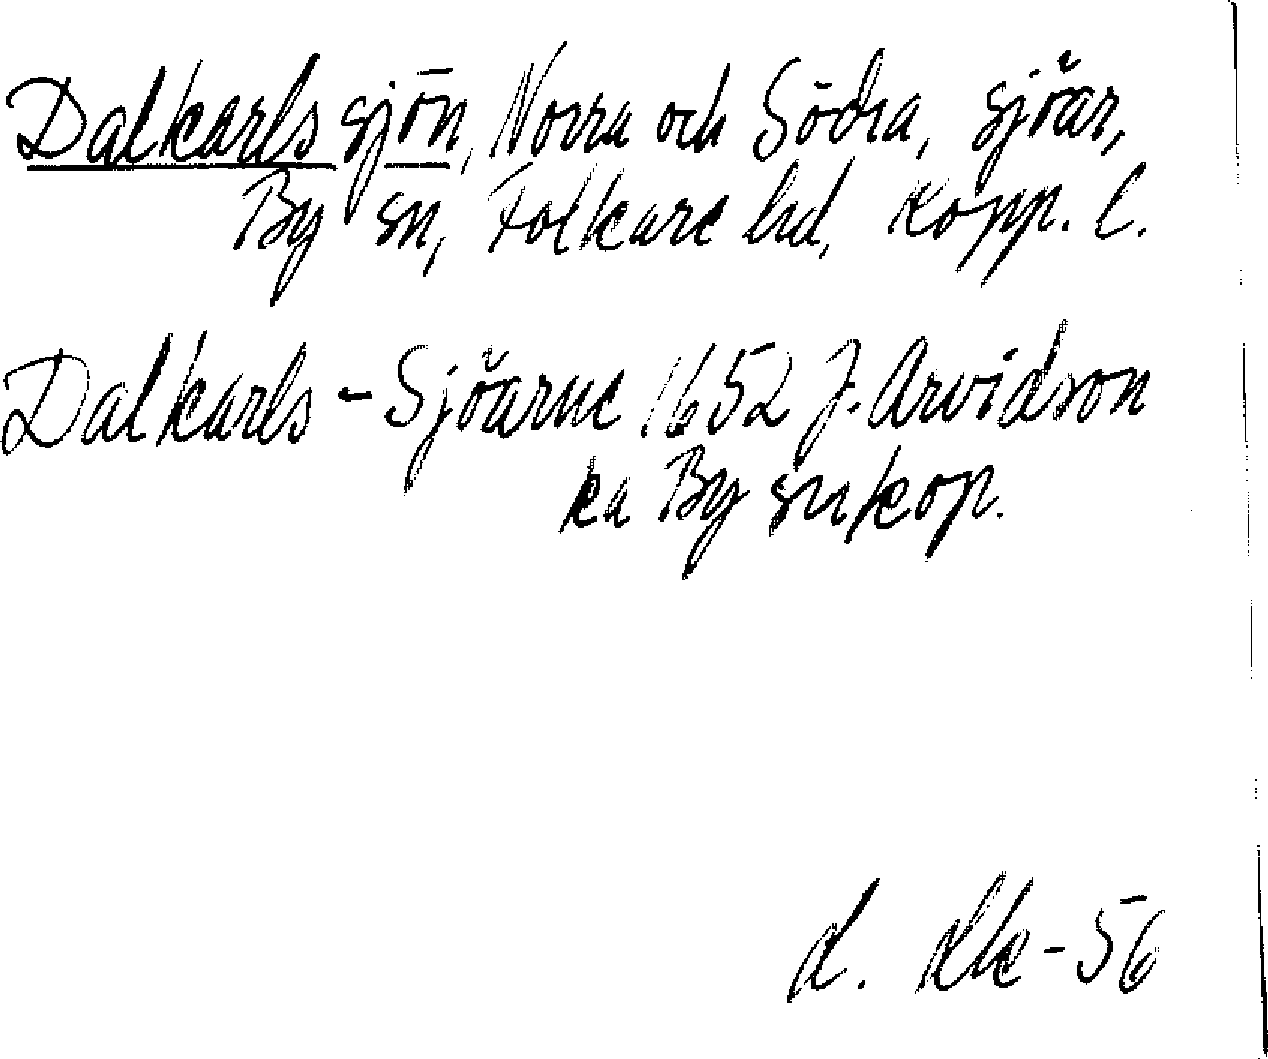 Dalkarlssjön, Norra och Södra, sjöar,
By sn, Folkare hd, Kopp. l.
Dalkarls-Sjöarne 1652 J. Arvidson
ka By sn kop.
- 56